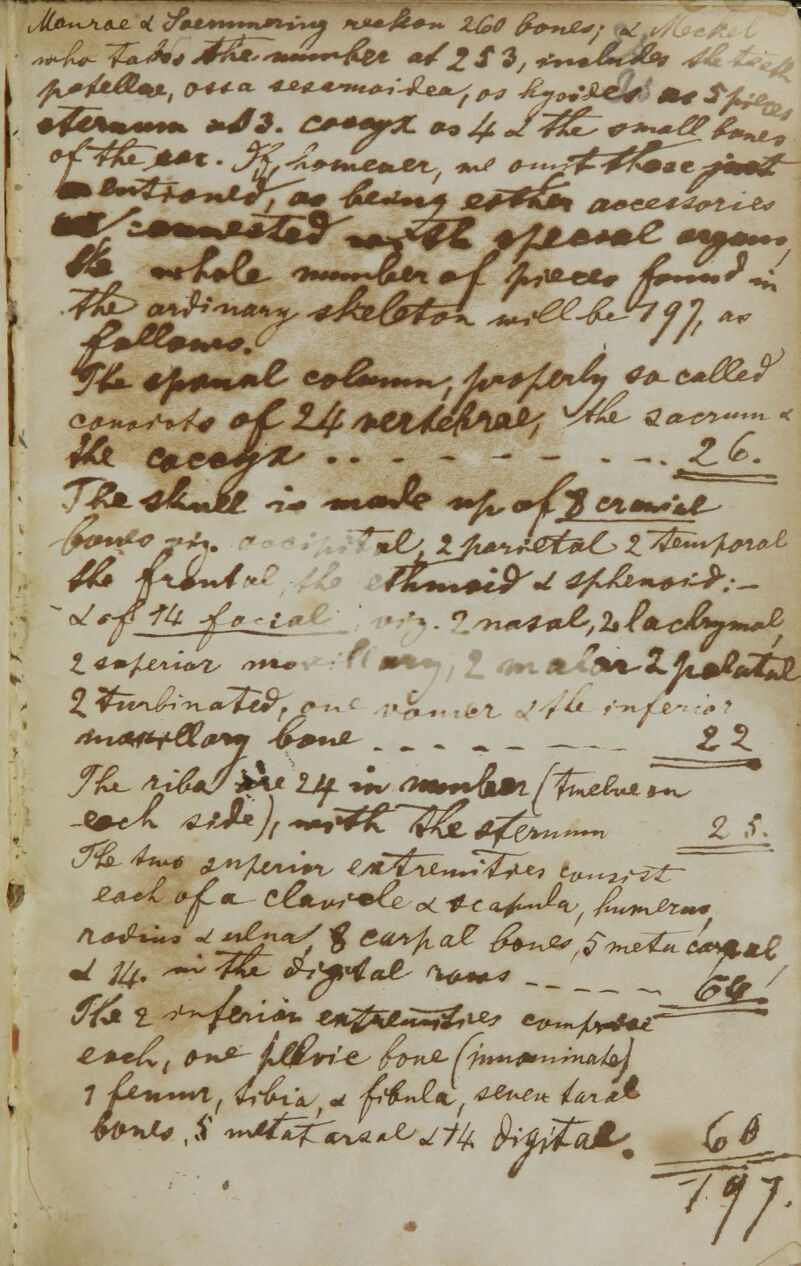 Monroe & Soemmering reckon 260 bones; & Meckel
who takes the number at 253, includes the teeth
patellae, ossa sesamoidea, os hyoides as 5 pieces
sternum as 3. coccyx as 4 & the small bones
of the ear. If, however, we omit those just
mentioned, as being either accessories
or connected with special organs,
the whole number of pieces found in
the ordinary skeleton will be 197, as
follows.
The spinal column, properly so called
consists of 24 vertebrae, the sacrum &
the cocyx .. - - - - - - .. 26.
The skull is made up of 8 cranial
bones viz. occipital, 2 parietal 2 temporal
the frontal, the ethmoid & sphenoid:—
& of 14 facial, viz. 2 nasal, 2 lachrymal,
2 superior maxillary, 2 malar 2 palatal
2 turbinated, one vomer & the inferior
maxillary bone - - - - - - - 22
The ribs are 24 in number (twelve on
each side), with the sternum 25.
The two superior extremities consist
each of a clavicle & scapula, humerus,
radius & ulna, 8 carpal bones, 5 meta carpal,
& 14. in the digital rows - - - - - 64.
The 2 inferior extremities comprise
each, one pelvic bone (innominate)
1 femur, tibia, & fibula, seven tarsal
bones, 5 metatarsal & 14 digital. 60
197.